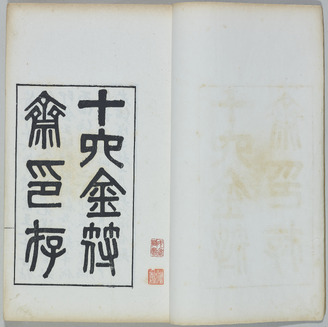 十六金符
齋印存